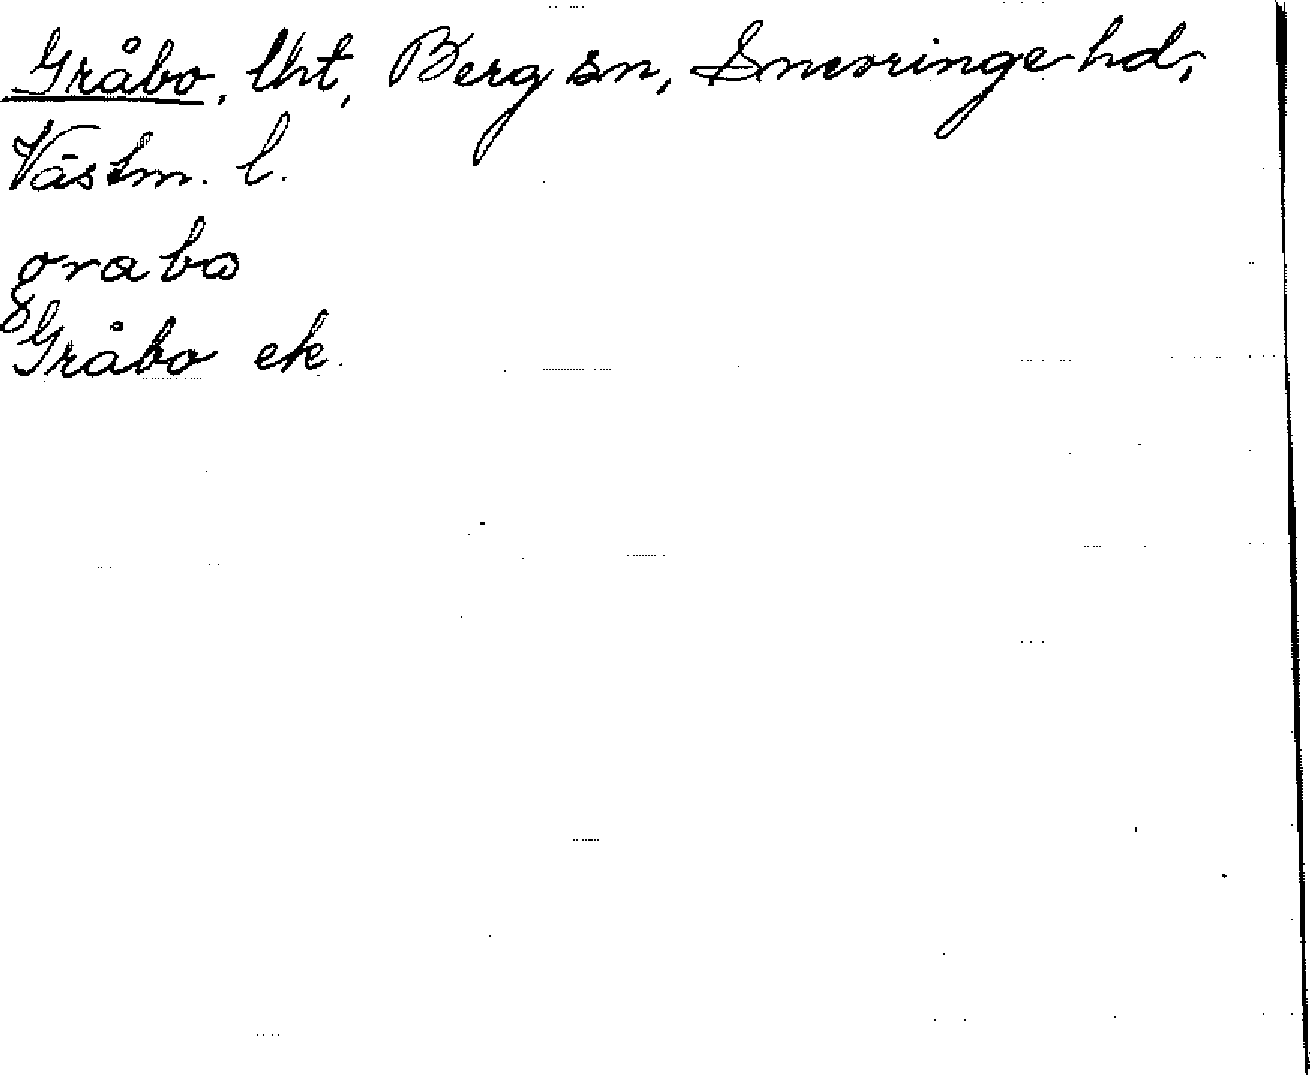 Gråbo, lht, Berg sn, Snevringe hd,
Västm. l.
grabo
Gråbo ek.